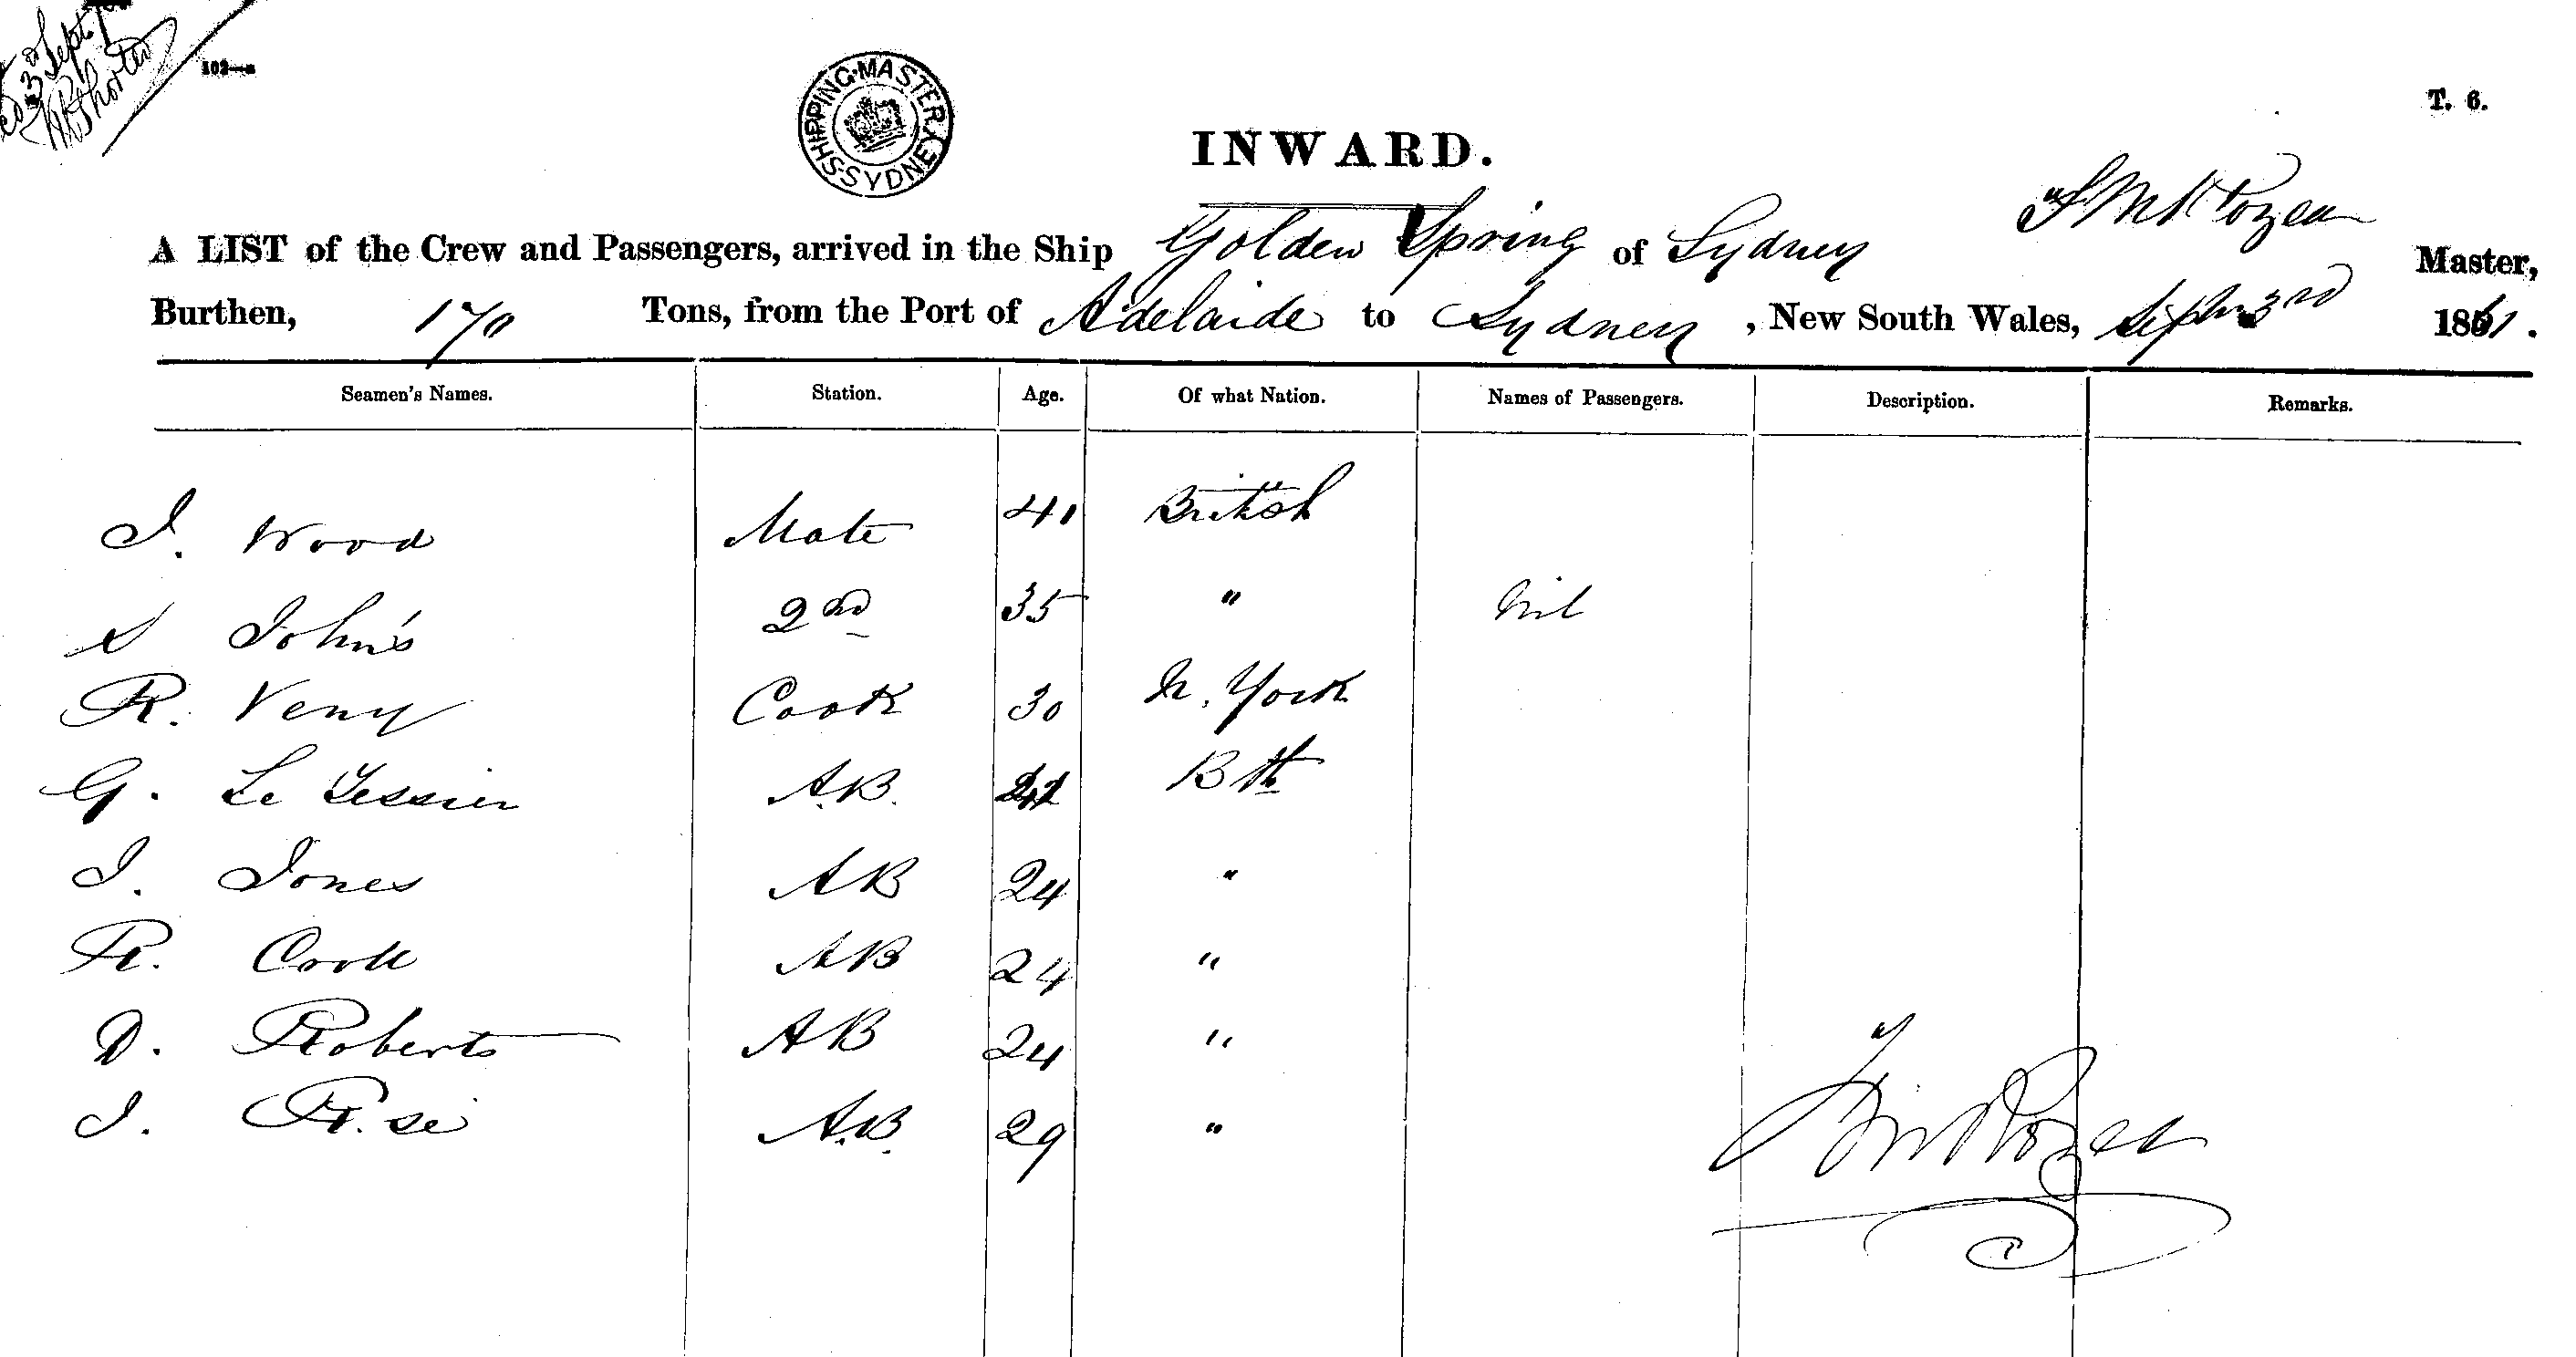 3rd Sept
103—a
SHIPPING MASTER SYDNEY
T. 6.
INWARD.
A LIST of the Crew and Passengers, arrived in the Ship Golden Spring of Sydney Master,
Burthen, 170 Tons, from the Port of Adelaide to Sydney, New South Wales, Septr 3rd 1861.
Seamen's Names. Station. Age. Of what Nation. Names of Passengers. Description. Remarks.
J. Wood Mate 40 British
S John's 2nd 35 " Nil
R. Veny Cook 30 N. York
G. Le Tessier A.B. Bth
J. Jones AB 24 "
R. Cook AB 24 "
D. Roberts AB 24 "
J. A.B. 29 "